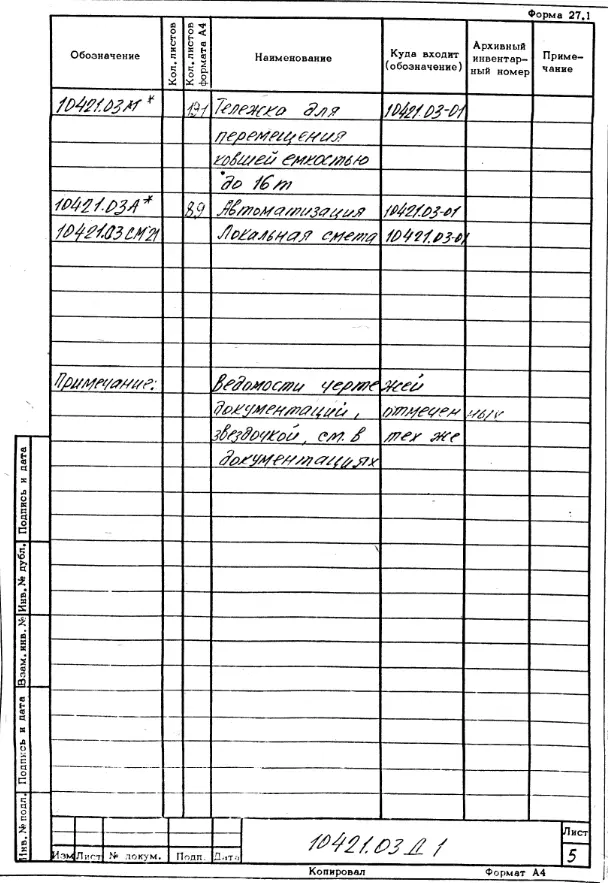 Форма 27.1
Обозначение Кол. листов Кол. листов формата А4 Наименование Куда входит (обозначение) Архивный инвентарный номер Приме-чание
10421.03М* 191 Тележка для 10421.03-01
перемещения
ковшей емкостью
до 16т
10421.03А* 89 Автоматизация 10421.03-01
10421.03СМ21 Локальная смета 10421.03-01
Примечание: Ведомости чертежей
документаций, отмеченных
звездочкой, см. в тех же
документациях
Инв. № подл. Подпись и дата Взам. инв. № Инв. № дубл. Подпись и дата
10421.03 Д 1
Лист
5
Изм Лист № докум. Подп. Дата
Копировал Формат А4